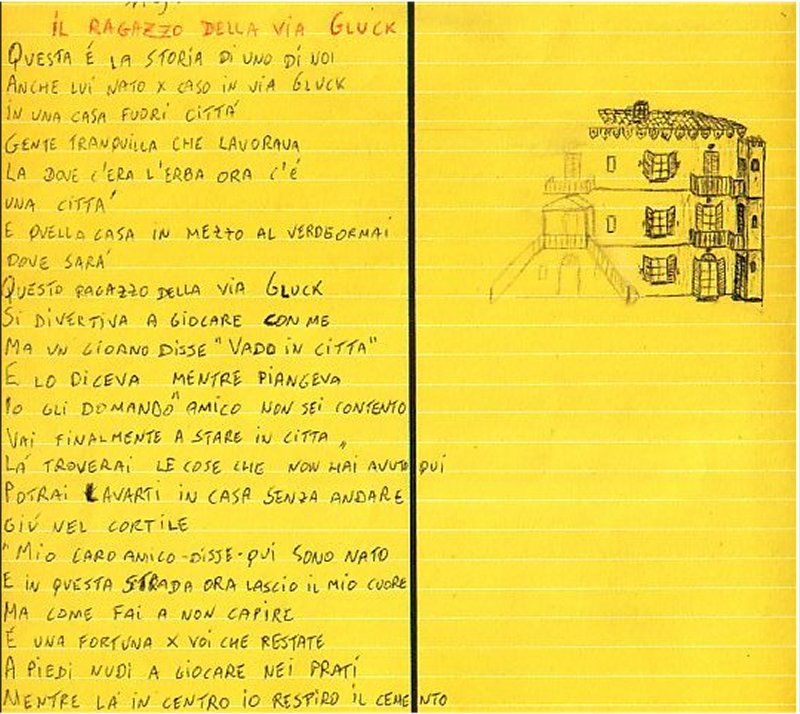 IL RAGAZZO DELLA VIA GLUCK
QUESTA É LA STORIA DI UNO DI NOI
ANCHE LUI NATO X CASO IN VIA GLUCK
IN UNA CASA FUORI CITTÁ
GENTE TRANQUILLA CHE LAVORAVA
LA DOVE C'ERA L'ERBA ORA C'É
UNA CITTÁ
E QUELLA CASA IN MEZZO AL VERDE ORMAI
DOVE SARÁ
QUESTO RAGAZZO DELLA VIA GLUCK
SI DIVERTIVA A GIOCARE CON ME
MA UN GIORNO DISSE "VADO IN CITTA"
E LO DICEVA MENTRE PIANGEVA
IO GLI DOMANDO "AMICO NON SEI CONTENTO
VAI FINALMENTE A STARE IN CITTA "
LÁ TROVERAI LE COSE CHE NON HAI AVUTO QUI
POTRAI LAVARTI IN CASA SENZA ANDARE
GIÚ NEL CORTILE
"MIO CARO AMICO - DISSE - QUI SONO NATO
E IN QUESTA STRADA ORA LASCIO IL MIO CUORE
MA COME FAI A NON CAPIRE
É UNA FORTUNA X VOI CHE RESTATE
A PIEDI NUDI A GIOCARE NEI PRATI
MENTRE LÁ IN CENTRO IO RESPIRO IL CEMENTO